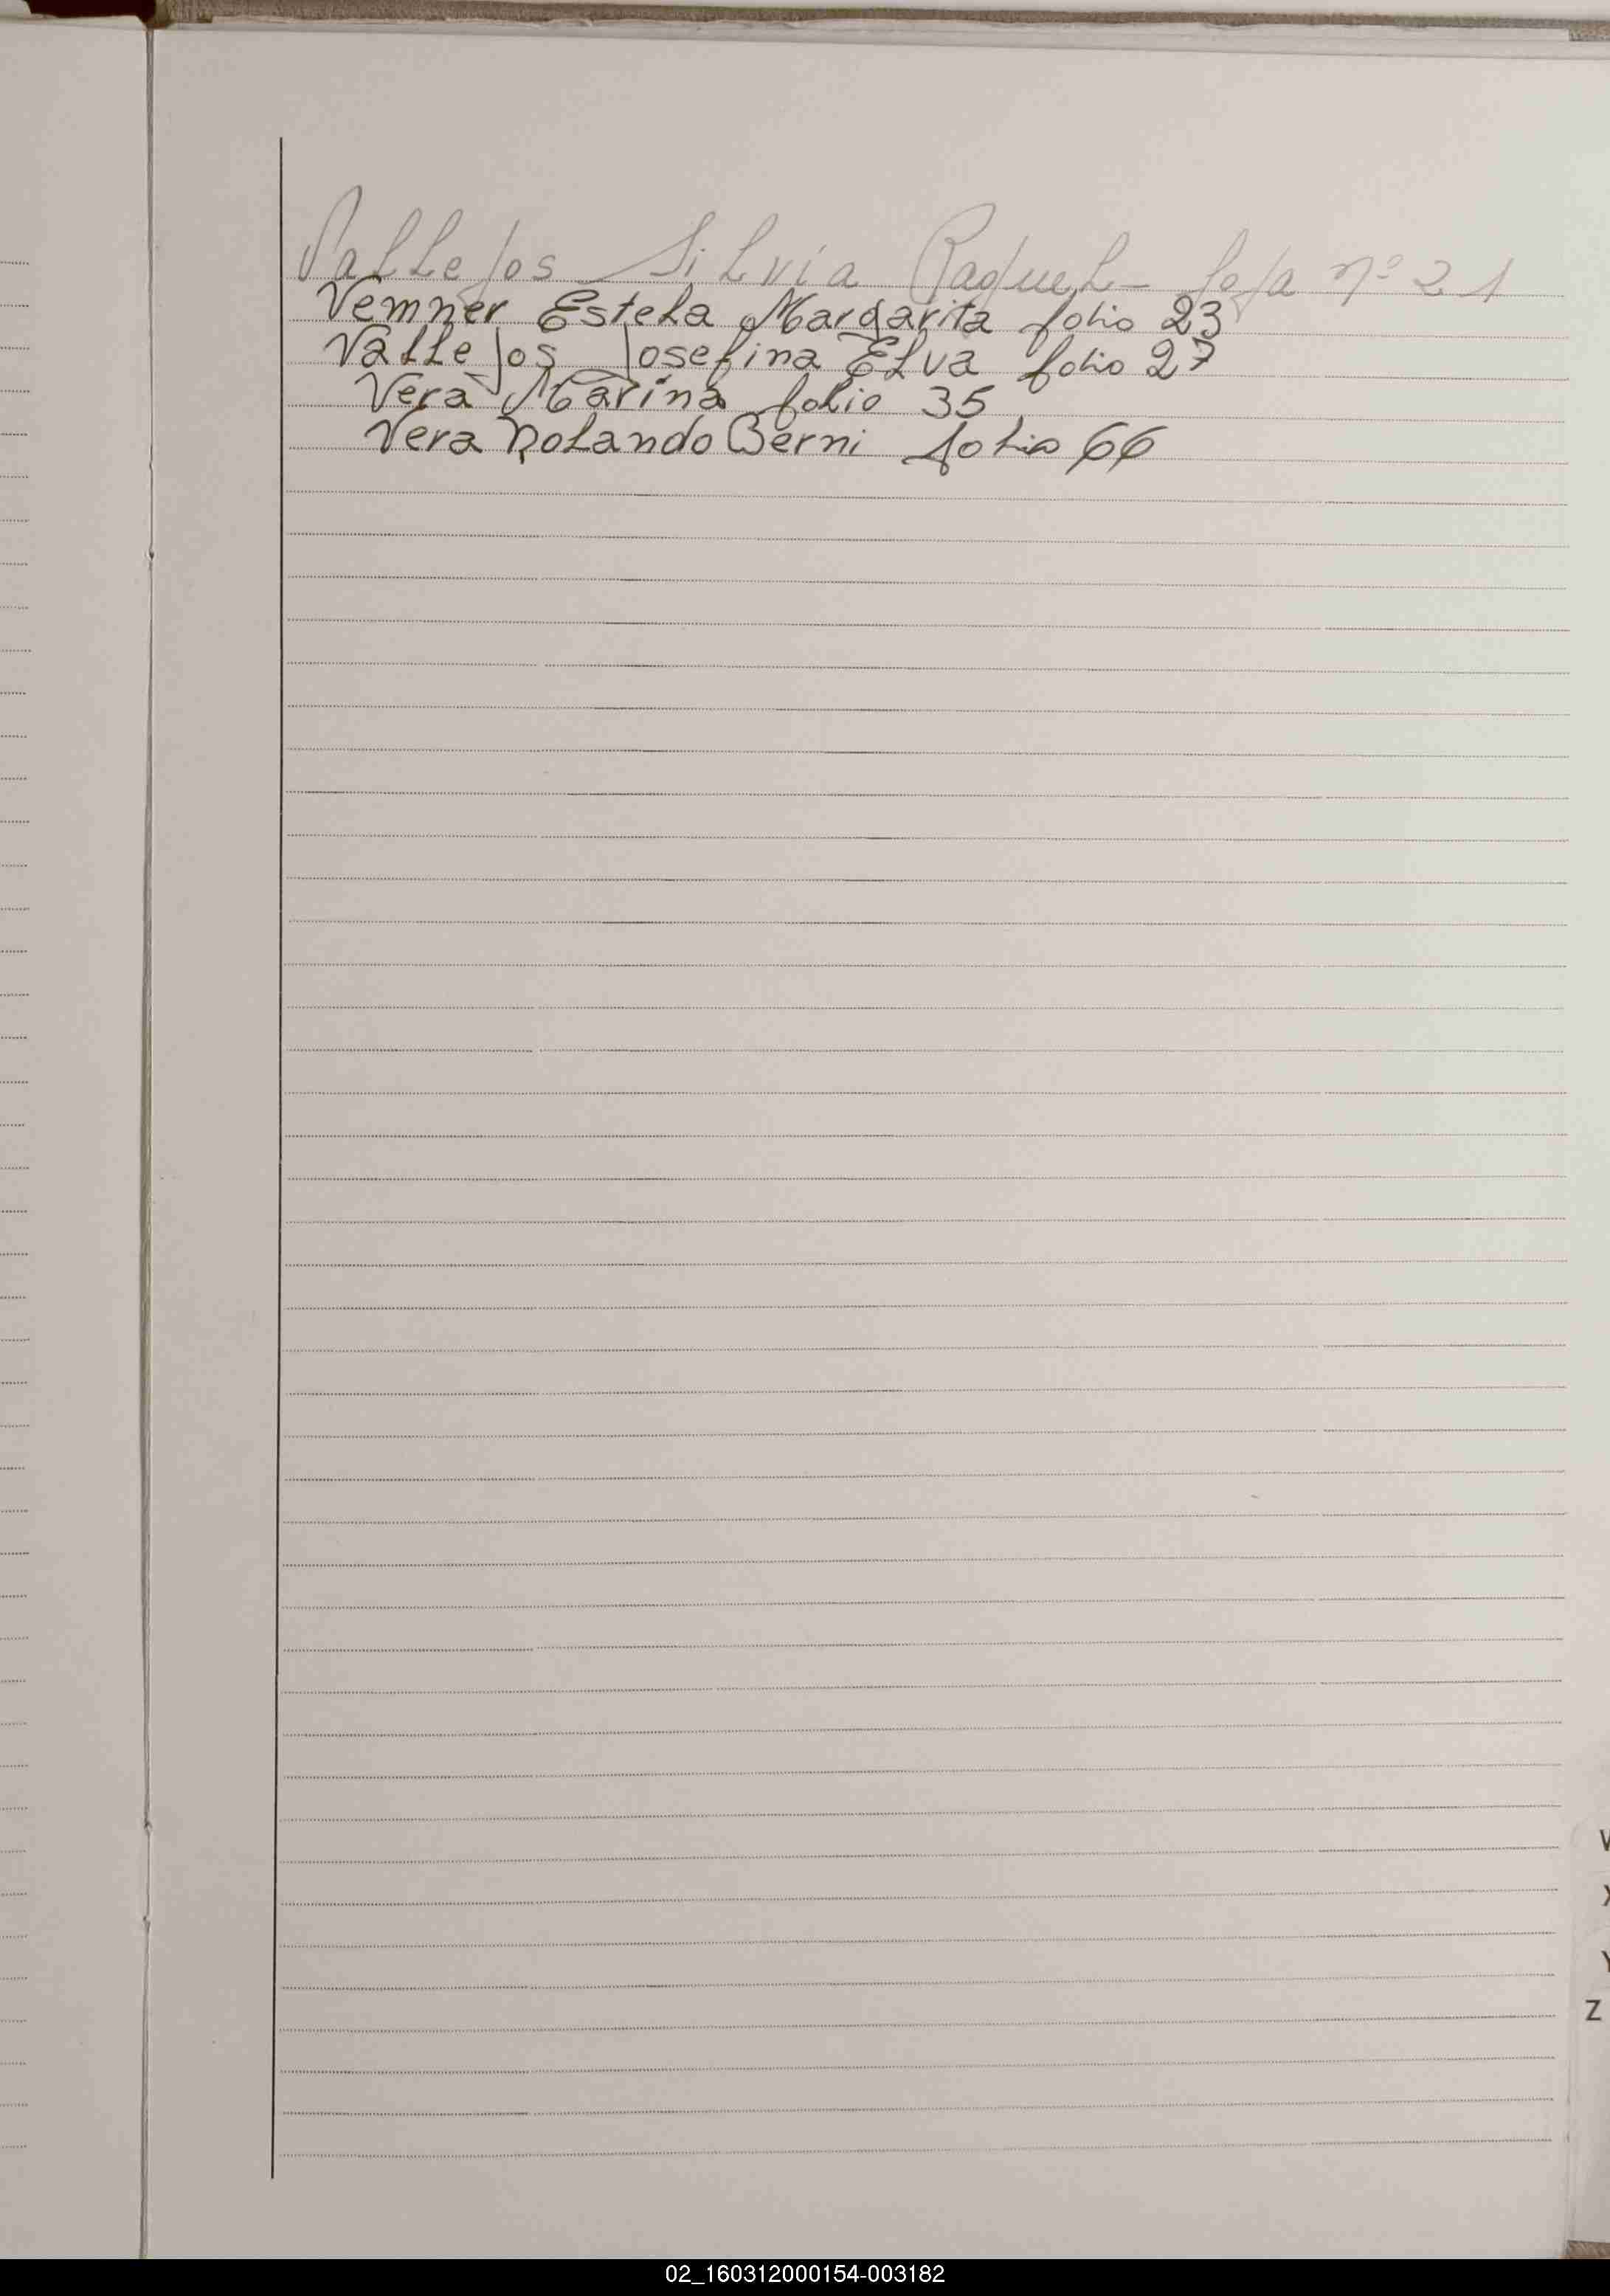 Vallejos Silvia Raquel - foja nº 21
Vemner Estela Margarita folio 23
Vallejos Josefina Elva folio 27
Vera Marina folio 35
Vera Rolando Berni folio 66
V
X
Y
Z
02_160312000154-003182